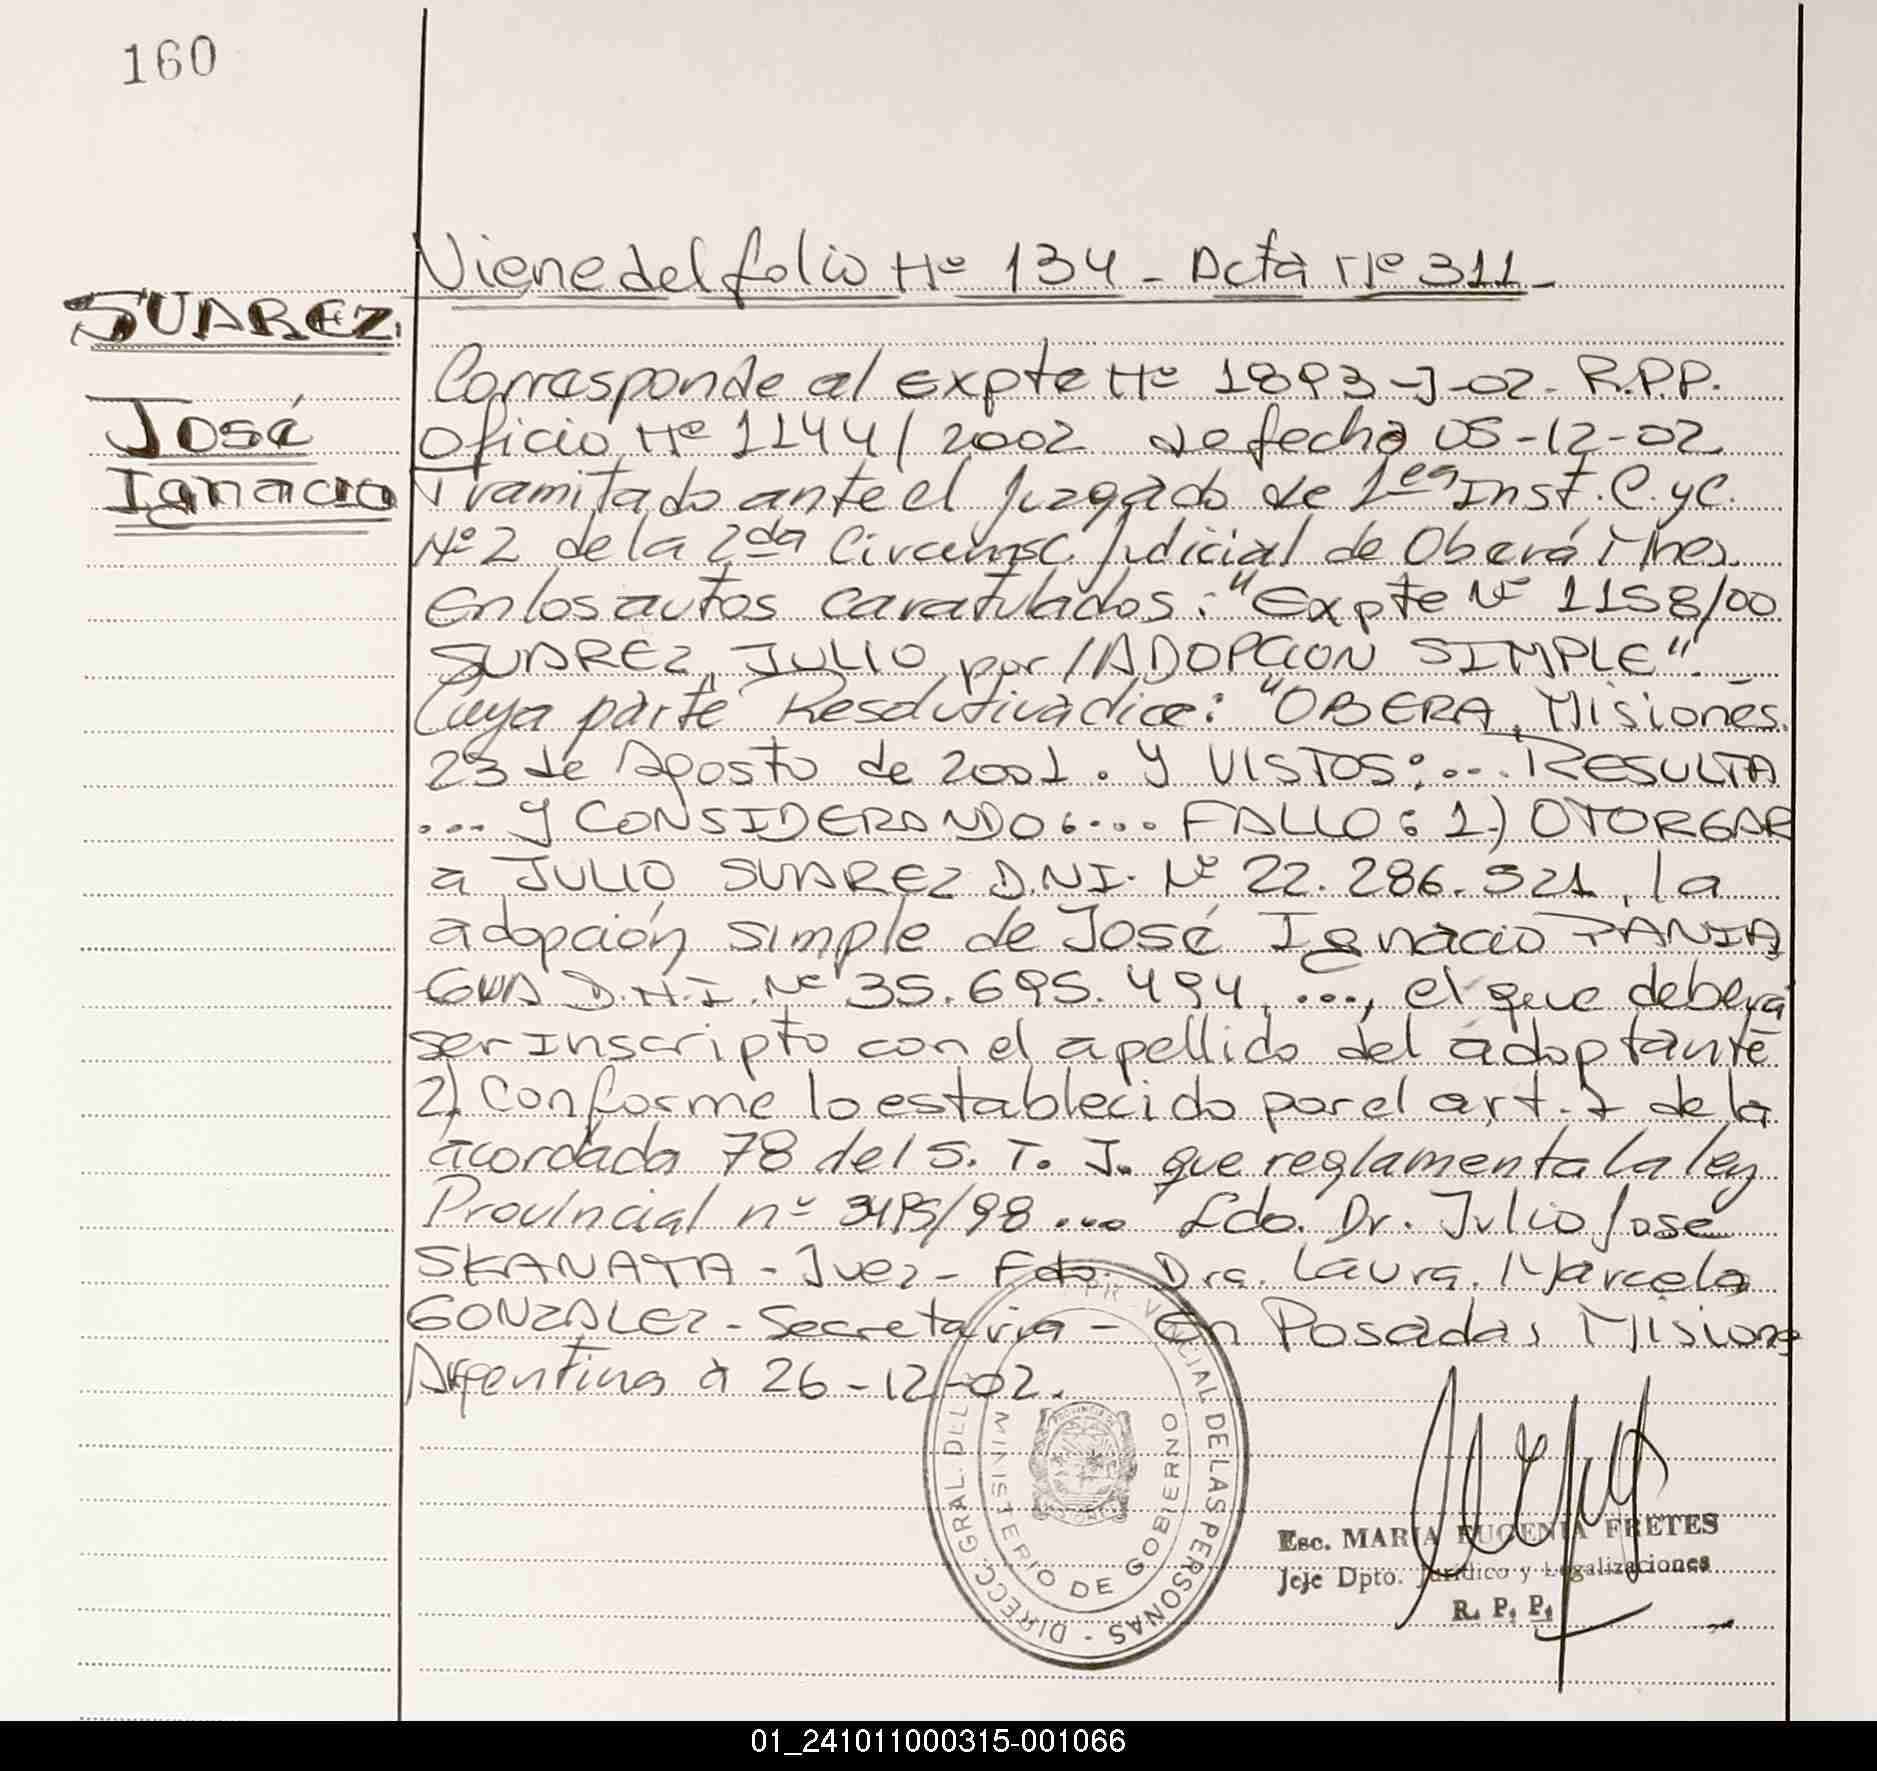 160
Viene del folio Nº 134 - Acta Nº 311 -
SUAREZ.
José
Ignacio
Corresponde al expte Nº 1893-J-02- R.P.P.
Oficio Nº 1144/2002 de fecha 05-12-02
Tramitado ante el Juzgado de 1era Inst. C. y C.
Nº 2 de la 2da Circunsc Judicial de Oberá Mnes.
En los autos caratulados: "Expte Nº 1158/00
SUAREZ, JULIO por /ADOPCION SIMPLE".
Cuya parte Resolutiva dice: "OBERA, Misiones.
23 de Agosto de 2001. Y VISTOS:... RESULTA
... Y CONSIDERANDO:... FALLO: 1.) OTORGAR
a JULIO SUAREZ D.N.I. Nº 22.286.521, la
adopción simple de José Ignacio PANIA
GUA D.N.I. Nº 35.695.494, ..., el que deberá
ser inscripto con el apellido del adoptante
2) Conforme lo establecido por el art. 1 de la
acordada 78 del S. T. J. que reglamenta la ley
Provincial nº 3495/98 ... fdo. Dr. Julio José
SKANATA - Juez - Fdo. Dra. Laura. Marcela
GONZALEZ - Secretaria - En Posadas, Misiones
Argentina a 26-12-02.
DIRECC. GRAL. DEL PROVINCIAL DE LAS PERSONAS -
MINISTERIO DE GOBIERNO
Esc. MARIA EUGENIA FRETES
Jefe Dpto. Jurídico y Legalizaciones
R. P. P.
01_241011000315-001066